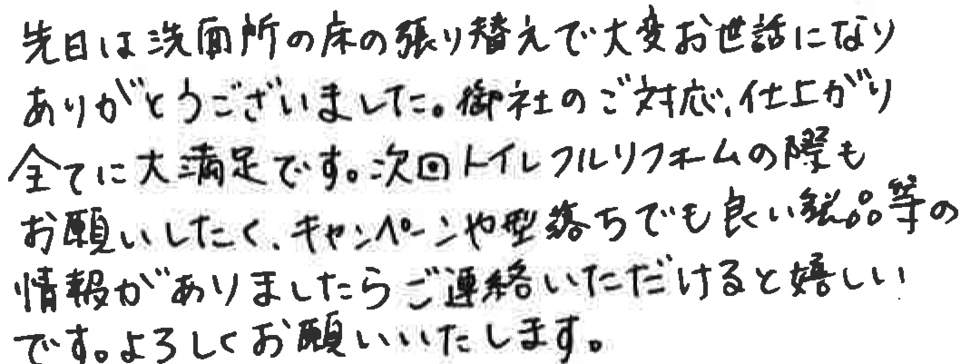 先日は洗面所の床の張り替えで大変お世話になり
ありがとうございました。御社のご対応、仕上がり
全てに大満足です。次回トイレフルリフォームの際も
お願いしたく、キャンペーンや型落ちでも良い製品等の
情報がありましたらご連絡いただけると嬉しい
です。よろしくお願いいたします。